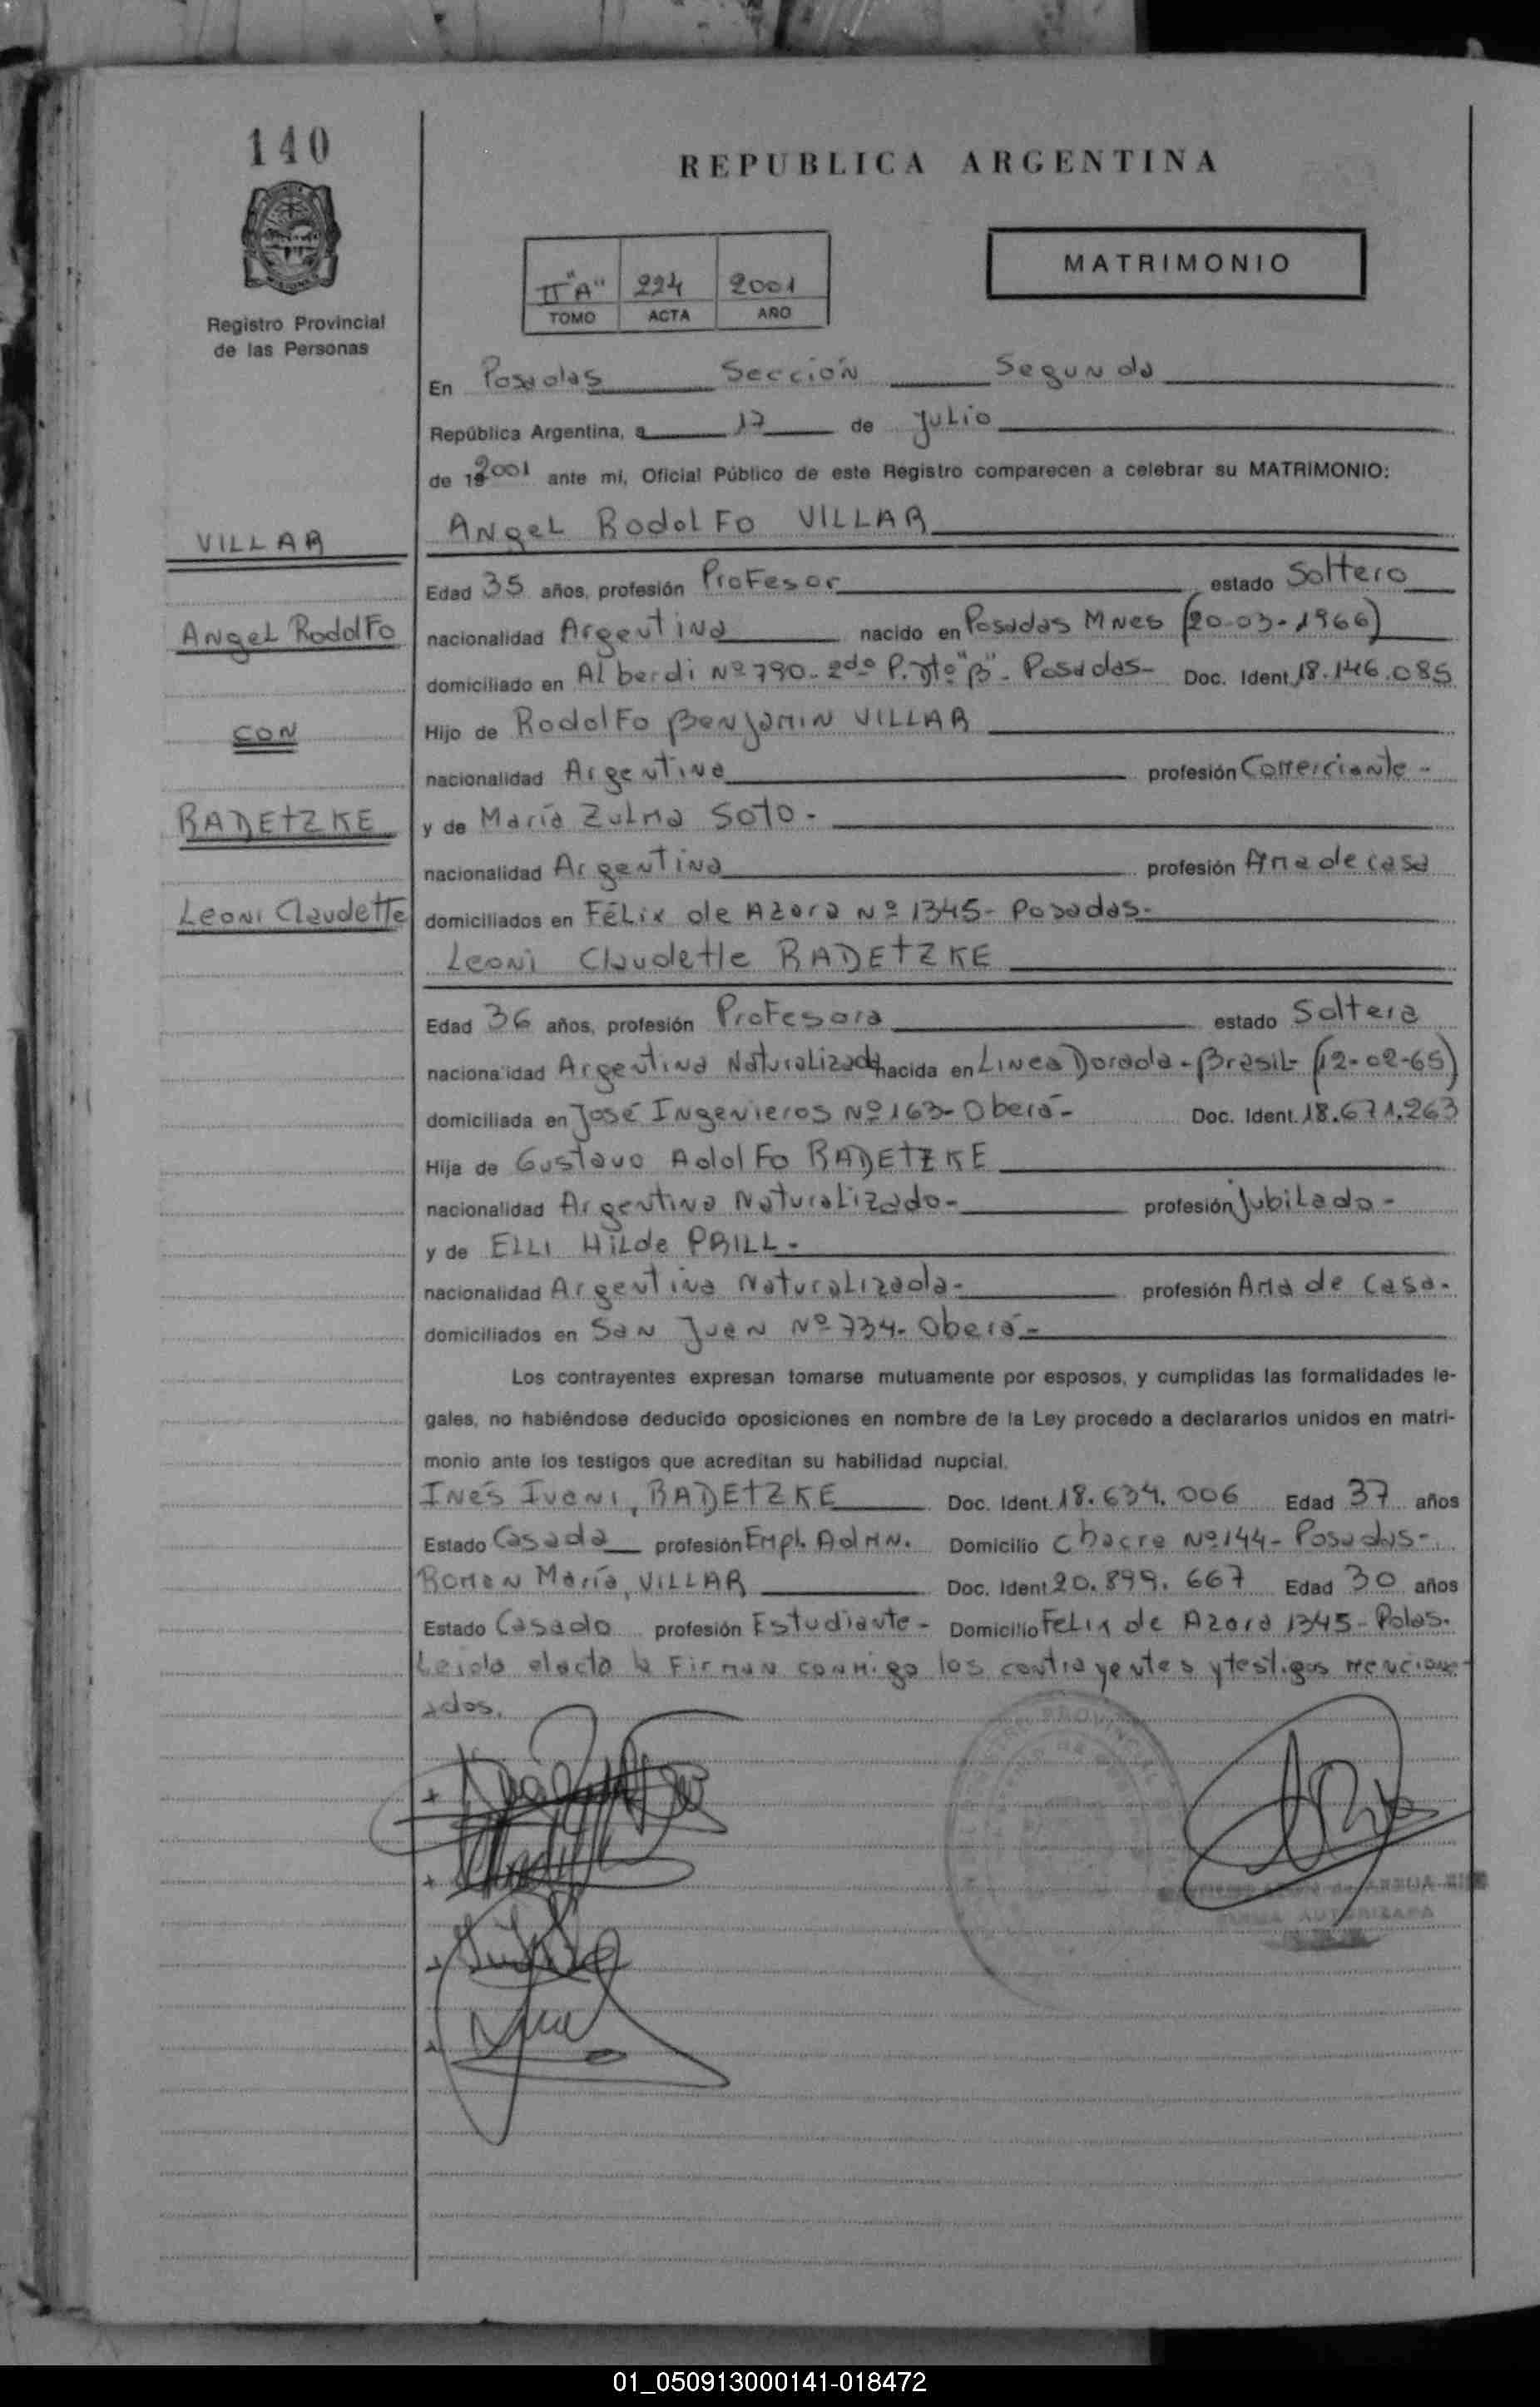 140
REPUBLICA ARGENTINA
MATRIMONIO
II "A" 224 2001
TOMO ACTA AÑO
Registro Provincial
de las Personas
En Posadas Sección Segunda
República Argentina, a 17 de julio
de 192001 ante mí, Oficial Público de este Registro comparecen a celebrar su MATRIMONIO:
VILLAR
Angel Rodolfo VILLAR
Edad 35 años, profesión Profesor estado Soltero
Angel Rodolfo
nacionalidad Argentina nacido en Posadas Mnes (20-03-1966)
domiciliado en Alberdi Nº 790- 2do P. Dto "B"- Posadas- Doc. Ident. 18.146.085
CON
Hijo de Rodolfo Benjamin VILLAR
nacionalidad Argentina profesión Comerciante-
RADETZKE
y de María Zulma Soto-
nacionalidad Argentina profesión Ama de casa
Leoni Claudette
domiciliados en Félix de Azara Nº 1345- Posadas-
Leoni Claudette RADETZKE
Edad 36 años, profesión Profesora estado Soltera
nacionalidad Argentina Naturalizada nacida en Linea Dorada- Brasil- (12-02-65)
domiciliada en José Ingenieros Nº 163- Oberá- Doc. Ident. 18.671.263
Hija de Gustavo Adolfo RADETZKE
nacionalidad Argentino Naturalizado- profesión jubilado-
y de Elli Hilde PRILL-
nacionalidad Argentina Naturalizada- profesión Ama de Casa-
domiciliados en San Juan Nº 734- Oberá-
Los contrayentes expresan tomarse mutuamente por esposos, y cumplidas las formalidades le-
gales, no habiéndose deducido oposiciones en nombre de la Ley procedo a declararlos unidos en matri-
monio ante los testigos que acreditan su habilidad nupcial.
Inés Ivoni, RADETZKE Doc. Ident. 18.634.006 Edad 37 años
Estado Casada profesión Empl. Admn. Domicilio Chacra Nº 144- Posadas-
Roman María, VILLAR Doc. Ident. 20.899.667 Edad 30 años
Estado Casado profesión Estudiante- Domicilio Felix de Azara 1345- Pdas.
Leida el acta la Firman conmigo los contrayentes y testigos mencion-
ados.
01_050913000141-018472